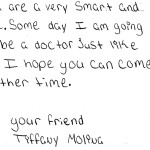 are a very smart and
. Some day I am going
be a doctor Just like
I hope you can come
ther time.
your friend
Tiffany Molina